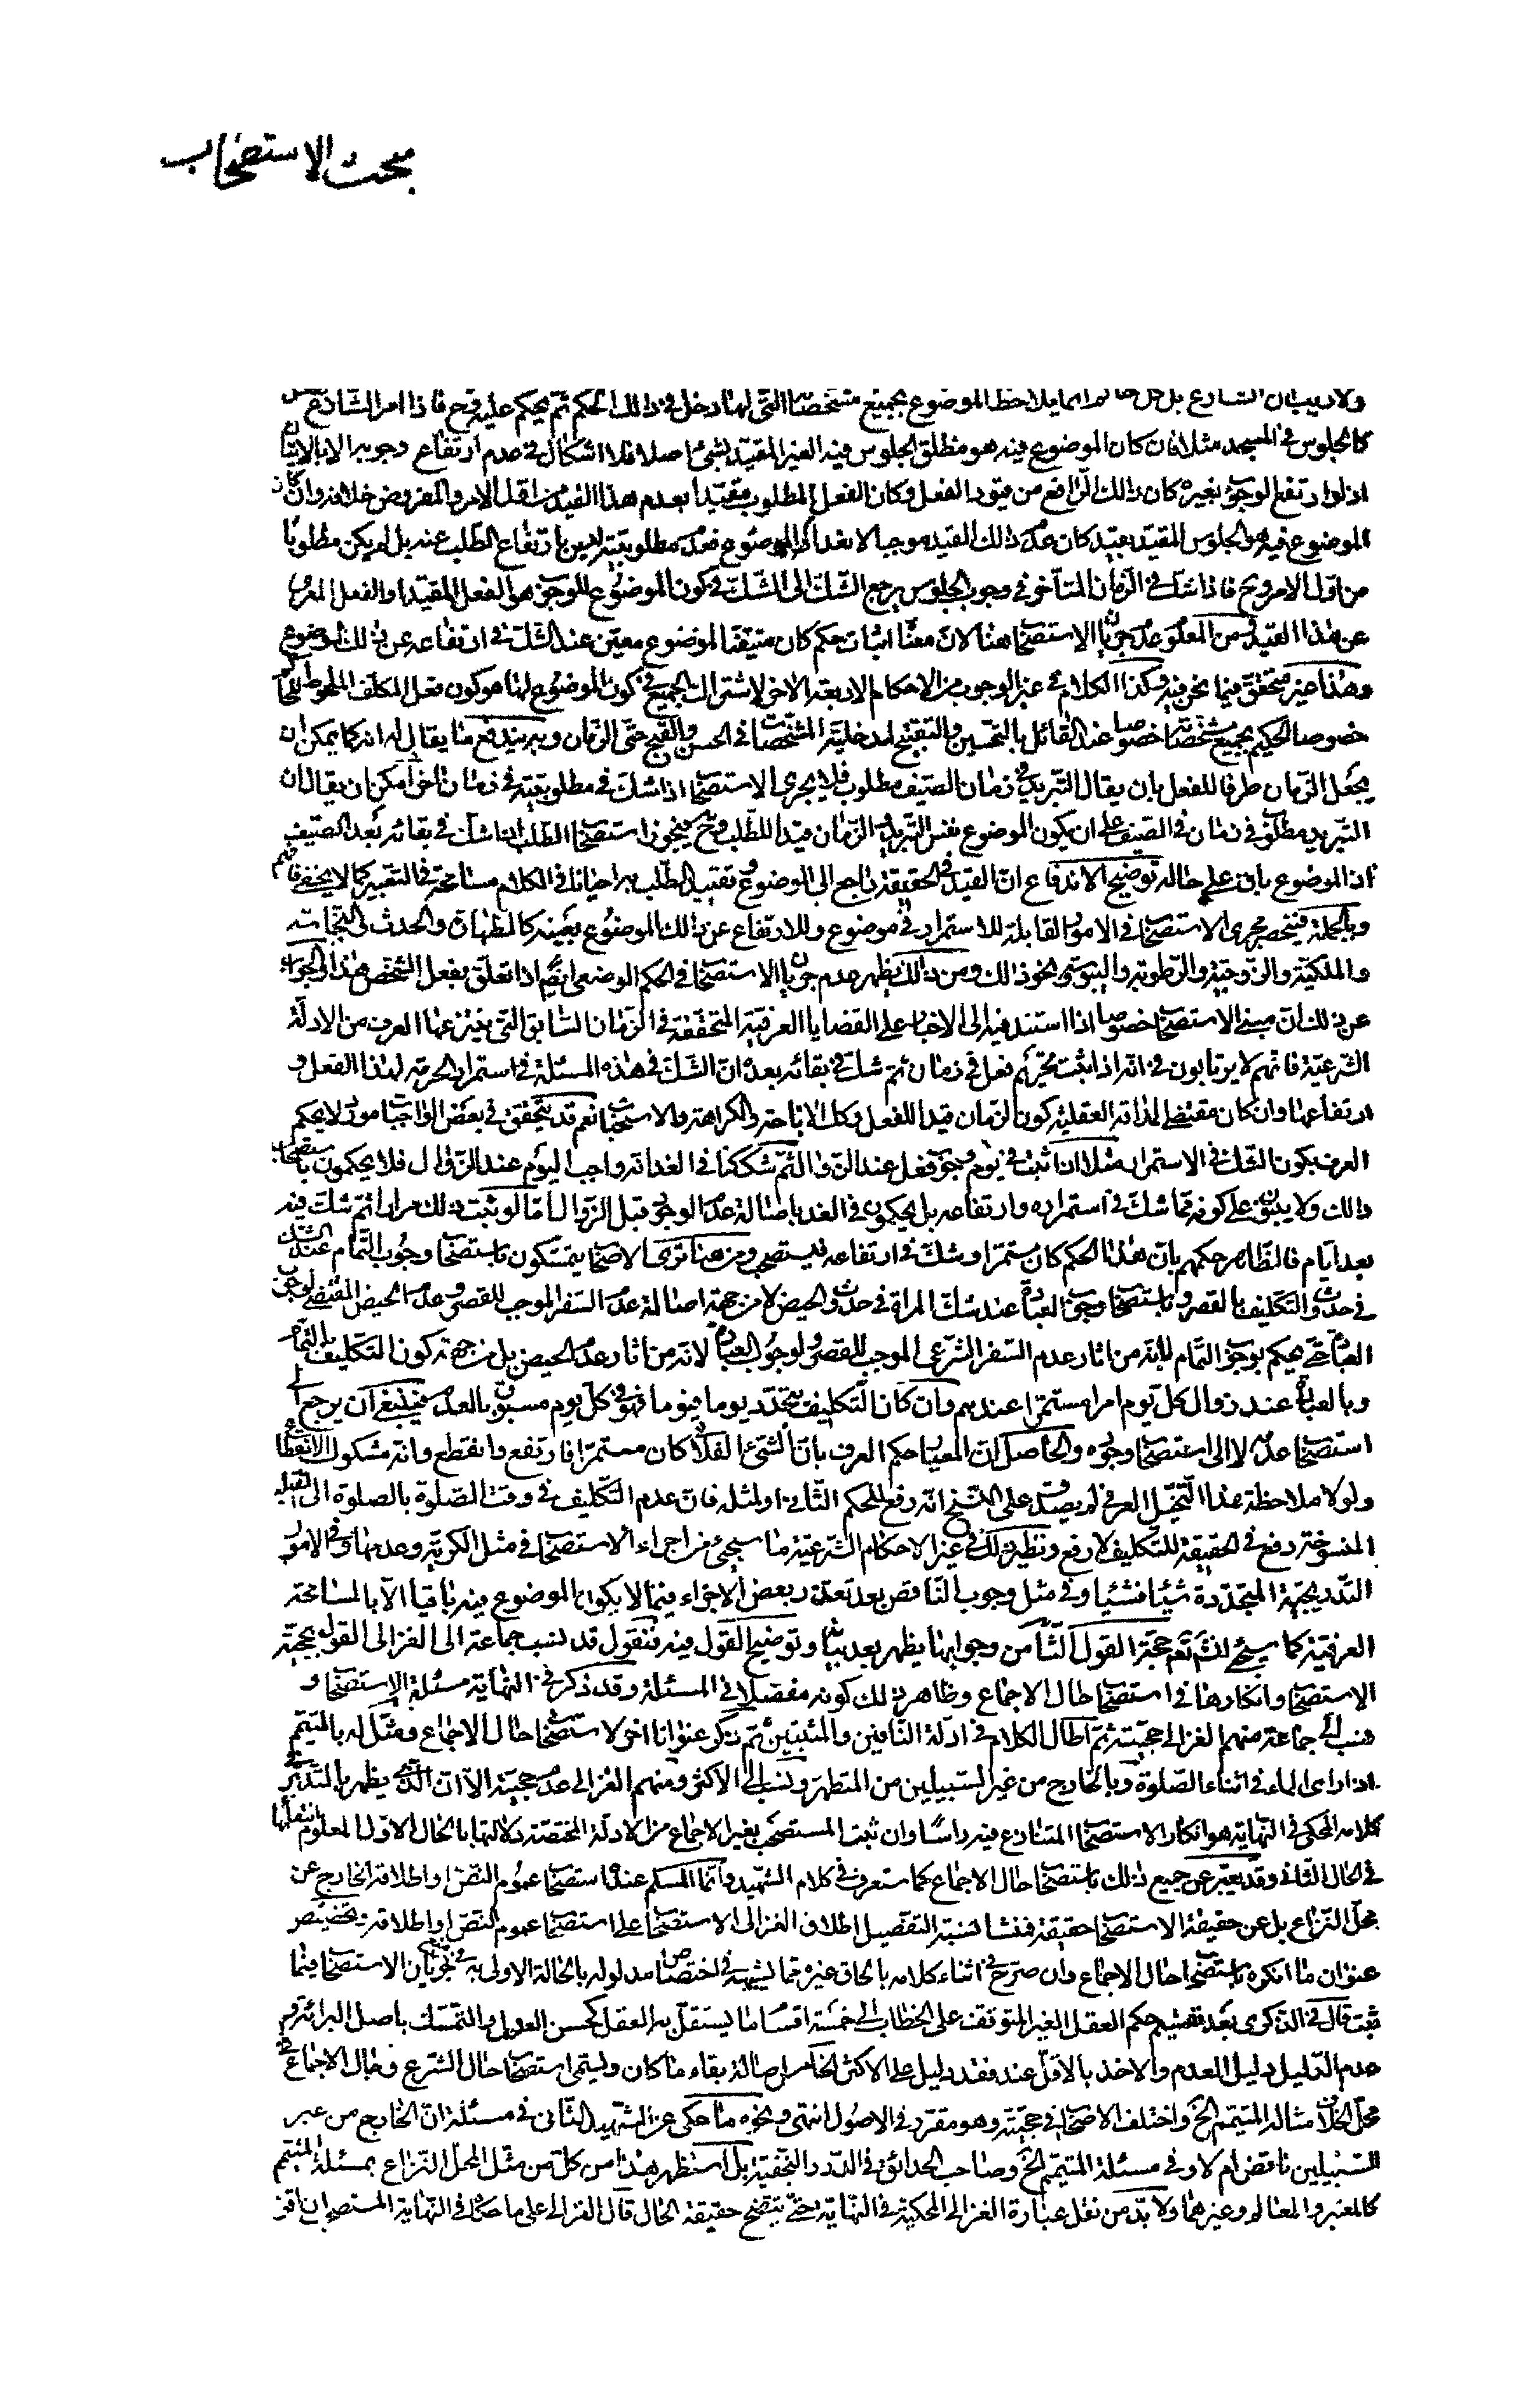 مبحث الاستصحاب
ولا ريب ان الشارع بل كل حاكم انما يلاحظ الموضوع بجميع مشخصاته التى لها دخل فى ذلك الحكم ثم يحكم عليه وح فاذا امر الشارع بفعل
كالجلوس فى المسجد مثلا فان كان الموضوع فيه هو مطلق الجلوس فيه الغير المقيد بشئ اصلا فلا اشكال فى عدم ارتفاع وجوبه الا بالاتيان به
اذ لو ارتفع الوجوب بغيره كان ذلك الرافع من قيود الفعل وكان الفعل المطلوب مقيدا بعدم هذا القيد من اول الامر والمفروض خلافه وان كان
الموضوع فيه هو الجلوس المقيد بقيد كان عدم ذلك القيد موجبا لانعدام الموضوع فعدم مطلوبيته ليس بارتفاع الطلب عنه بل لم يكن مطلوبا
من اول الامر وح فاذا شك فى الزمان المتاخر فى وجوب الجلوس يرجع الشك الى الشك فى كون الموضوع للوجوب هو الفعل المقيد او الفعل المعرى
عن هذا القيد ومن المعلوم عدم جريان الاستصحاب هنا لان معناه اثبات حكم كان متيقنا لموضوع معين عند الشك فى ارتفاعه عن ذلك الموضوع
وهذا غير متحقق فيما نحن فيه وكذا الكلام فى غير الوجوب من الاحكام الاربعة الاخر لاشتراك الجميع فى كون الموضوع لها هو كون فعل المكلف الملحوظ للحاكم
خصوصا الحكيم بجميع مشخصاته خصوصا عند القائل بالتحسين والتقبيح لمدخلية المشخصات فى الحسن والقبح حتى الزمان وبه يندفع ما يقال انه كما يمكن ان
يجعل الزمان ظرفا للفعل بان يقال التبريد فى زمان الصيف مطلوب فلا يجرى الاستصحاب اذا شك فى مطلوبيته فى زمان اخر امكن ان يقال ان
التبريد مطلوب فى زمان فى الصيف على ان يكون الموضوع نفس التبريد والزمان قيدا للطلب وح فيجوز استصحاب الطلب اذا شك فى بقائه بعد الصيف
اذ الموضوع باق على حاله توضيح الاندفاع ان القيد فى الحقيقة راجع الى الموضوع وتقييد الطلب به احيانا فى الكلام مسامحة فى التعبير كما لا يخفى فافهم
وبالجملة فينحصر مجرى الاستصحاب فى الامور القابلة للاستمرار فى موضوع وللارتفاع عن ذلك الموضوع بعينه كالطهارة والحدث والنجاسة
والملكية والزوجية والرطوبة واليبوسة ونحو ذلك ومن ذلك يظهر عدم جريان الاستصحاب فى الحكم الوضعى ايضا اذا تعلق بفعل الشخص هذا والجواب
عن ذلك ان مبنى الاستصحاب خصوصا اذا استند فيه الى الاخبار على القضايا العرفية المتحققة فى الزمان السابق التى ينتزعها العرف من الادلة
الشرعية فانهم لا يرتابون فى انه اذا ثبت تحريم فعل فى زمان ثم شك فى بقائه بعده ان الشك فى هذه المسئلة فى استمرار الحرمة لهذا الفعل و
ارتفاعها وان كان مقتضى المداقة العقلية كون الزمان قيدا للفعل وكذا الاباحة والكراهة والاستحباب نعم قد يتحقق فى بعض الواجبات مورد لا يحكم
العرف بكون الشك فى الاستمرار مثلا اذا ثبت فى يوم وجوب فعل عند الزوال ثم شككنا فى الغد انه واجب اليوم عند الزوال فلا يحكمون باستصحاب
ذلك ولا يبنون على كونه مما شك فى استمراره وارتفاعه بل يحكمون فى الغد باصالة عدم الوجوب قبل الزوال اما لو ثبت ذلك مرارا ثم شك فيه
بعد ايام فالظاهر حكمهم بان هذا الحكم كان مستمرا وشك فى ارتفاعه فيستصحب ومن هنا ترى الاصحاب يتمسكون باستصحاب وجوب التمام عند الشك
فى حدوث التكليف بالقصر وباستصحاب وجوب العبادة عند شك المراة فى حدوث الحيض لا من جهة اصالة عدم السفر الموجب للقصر وعدم الحيض المقتضى لوجوب
العبادة حتى يحكم بوجوب التمام لانه من اثار عدم السفر الشرعى الموجب للقصر ولوجوب العبادة لانه من اثار عدم الحيض بل من جهة كون التكليف بالتمام
وبالعبادة عند زوال كل يوم امرا مستمرا عندهم وان كان التكليف يتجدد يوما فيوما فهو فى كل يوم مسبوق بالعدم فينبغى ان يرجع الى
استصحاب عدمه لا الى استصحاب وجوده والحاصل ان المعيار حكم العرف بان الشئ الفلانى كان مستمرا فارتفع وانقطع وانه مشكوك الانقطاع
ولولا ملاحظة هذا التخيل العرفى لم يصدق على النسخ انه رفع للحكم الثابت او لمثله فان عدم التكليف فى وقت الصلوة بالصلوة الى القبلة
المنسوخة دفع فى الحقيقة للتكليف لا رفع ونظير ذلك فى غير الاحكام الشرعية ما سيجئ من اجراء الاستصحاب فى مثل الكرية وعدمها وفى الامور
التدريجية المتجددة شيئا فشيئا وفى مثل وجوب الناقص بعد تعذر بعض الاجزاء فيما لا يكون الموضوع فيه باقيا الا بالمسامحة
العرفية كما سيجئ انشاء الله تعالى حجة القول الثامن وجوابها يظهر بعد بيانه وتوضيح القول فيه فنقول قد نسب جماعة الى الغزالى القول بحجية
الاستصحاب وانكارها فى استصحاب حال الاجماع وظاهر ذلك كونه مفصلا فى المسئلة وقد ذكر فى النهاية مسئلة الاستصحاب و
نسب الى جماعة منهم الغزالى حجيته ثم اطال الكلام فى ادلة النافين والمثبتين ثم ذكر عنوانا اخر لاستصحاب حال الاجماع ومثل له بالمتيمم
اذا راى الماء فى اثناء الصلوة وبالخارج من غير السبيلين من المتطهر ونسب الى الاكثر ومنهم الغزالى عدم حجيته الا ان الذى يظهر بالتدبر فى
كلامه المحكى فى النهاية هو انكار الاستصحاب المتنازع فيه راسا وان ثبت المستصحب بغير الاجماع من الادلة المختصة دلالتها بالحال الاول المعلوم انتفائها
فى الحال الثانى وقد يعبر عن جميع ذلك باستصحاب حال الاجماع كما ستعرف فى كلام الشهيد وانما المسلم عنده استصحاب عموم النص او اطلاقه الخارج عن
محل النزاع بل عن حقيقة الاستصحاب حقيقة فمنشا نسبة التفصيل اطلاق الغزالى الاستصحاب على استصحاب عموم النص او اطلاقه وتخصيص
عنوان ما انكره باستصحاب حال الاجماع وان صرح فى اثناء كلامه بالحاق غيره مما يشبهه فى اختصاص مدلوله بالحالة الاولى به فى منع جريان الاستصحاب فيما
ثبت قال فى الذكرى بعد تقسيم حكم العقل الغير المتوقف على الخطاب الى خمسة اقسام ما يستقل به العقل كحسن العدل والتمسك باصل البرائة و
عدم الدليل دليل العدم والاخذ بالاقل عند فقد دليل على الاكثر الخامس اصالة بقاء ما كان ويسمى استصحاب حال الشرع وحال الاجماع فى
محل الخلاف مثاله المتيمم الخ واختلف الاصحاب فى حجيته وهو مقرر فى الاصول انتهى ونحوه ما حكى عن الشهيد الثانى فى مسئلة ان الخارج من غير
السبيلين ناقض ام لا وفى مسئلة المتيمم الخ وصاحب الحدائق فى الدرر النجفية بل استظهر هذا من كل من مثل لمحل النزاع بمسئلة المتيمم
كالمعتبر والمعالم وغيرهما ولا بد من نقل عبارة الغزالى المحكية فى النهاية حتى يتضح حقيقة الحال قال الغزالى على ما حكاه فى النهاية المستصحب ان اقر